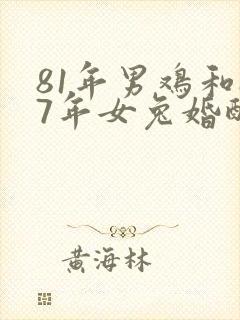 81年男鸡和
7年女兔婚
黄海林